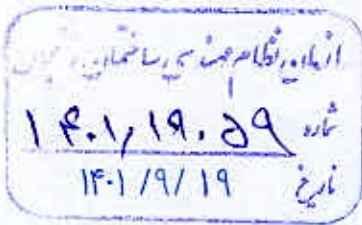 سازمان نظام مهندسی ساختمان
شماره ۱۴۰۱/۱۹۰۵۹
تاریخ ۱۴۰۱/۹/۱۹